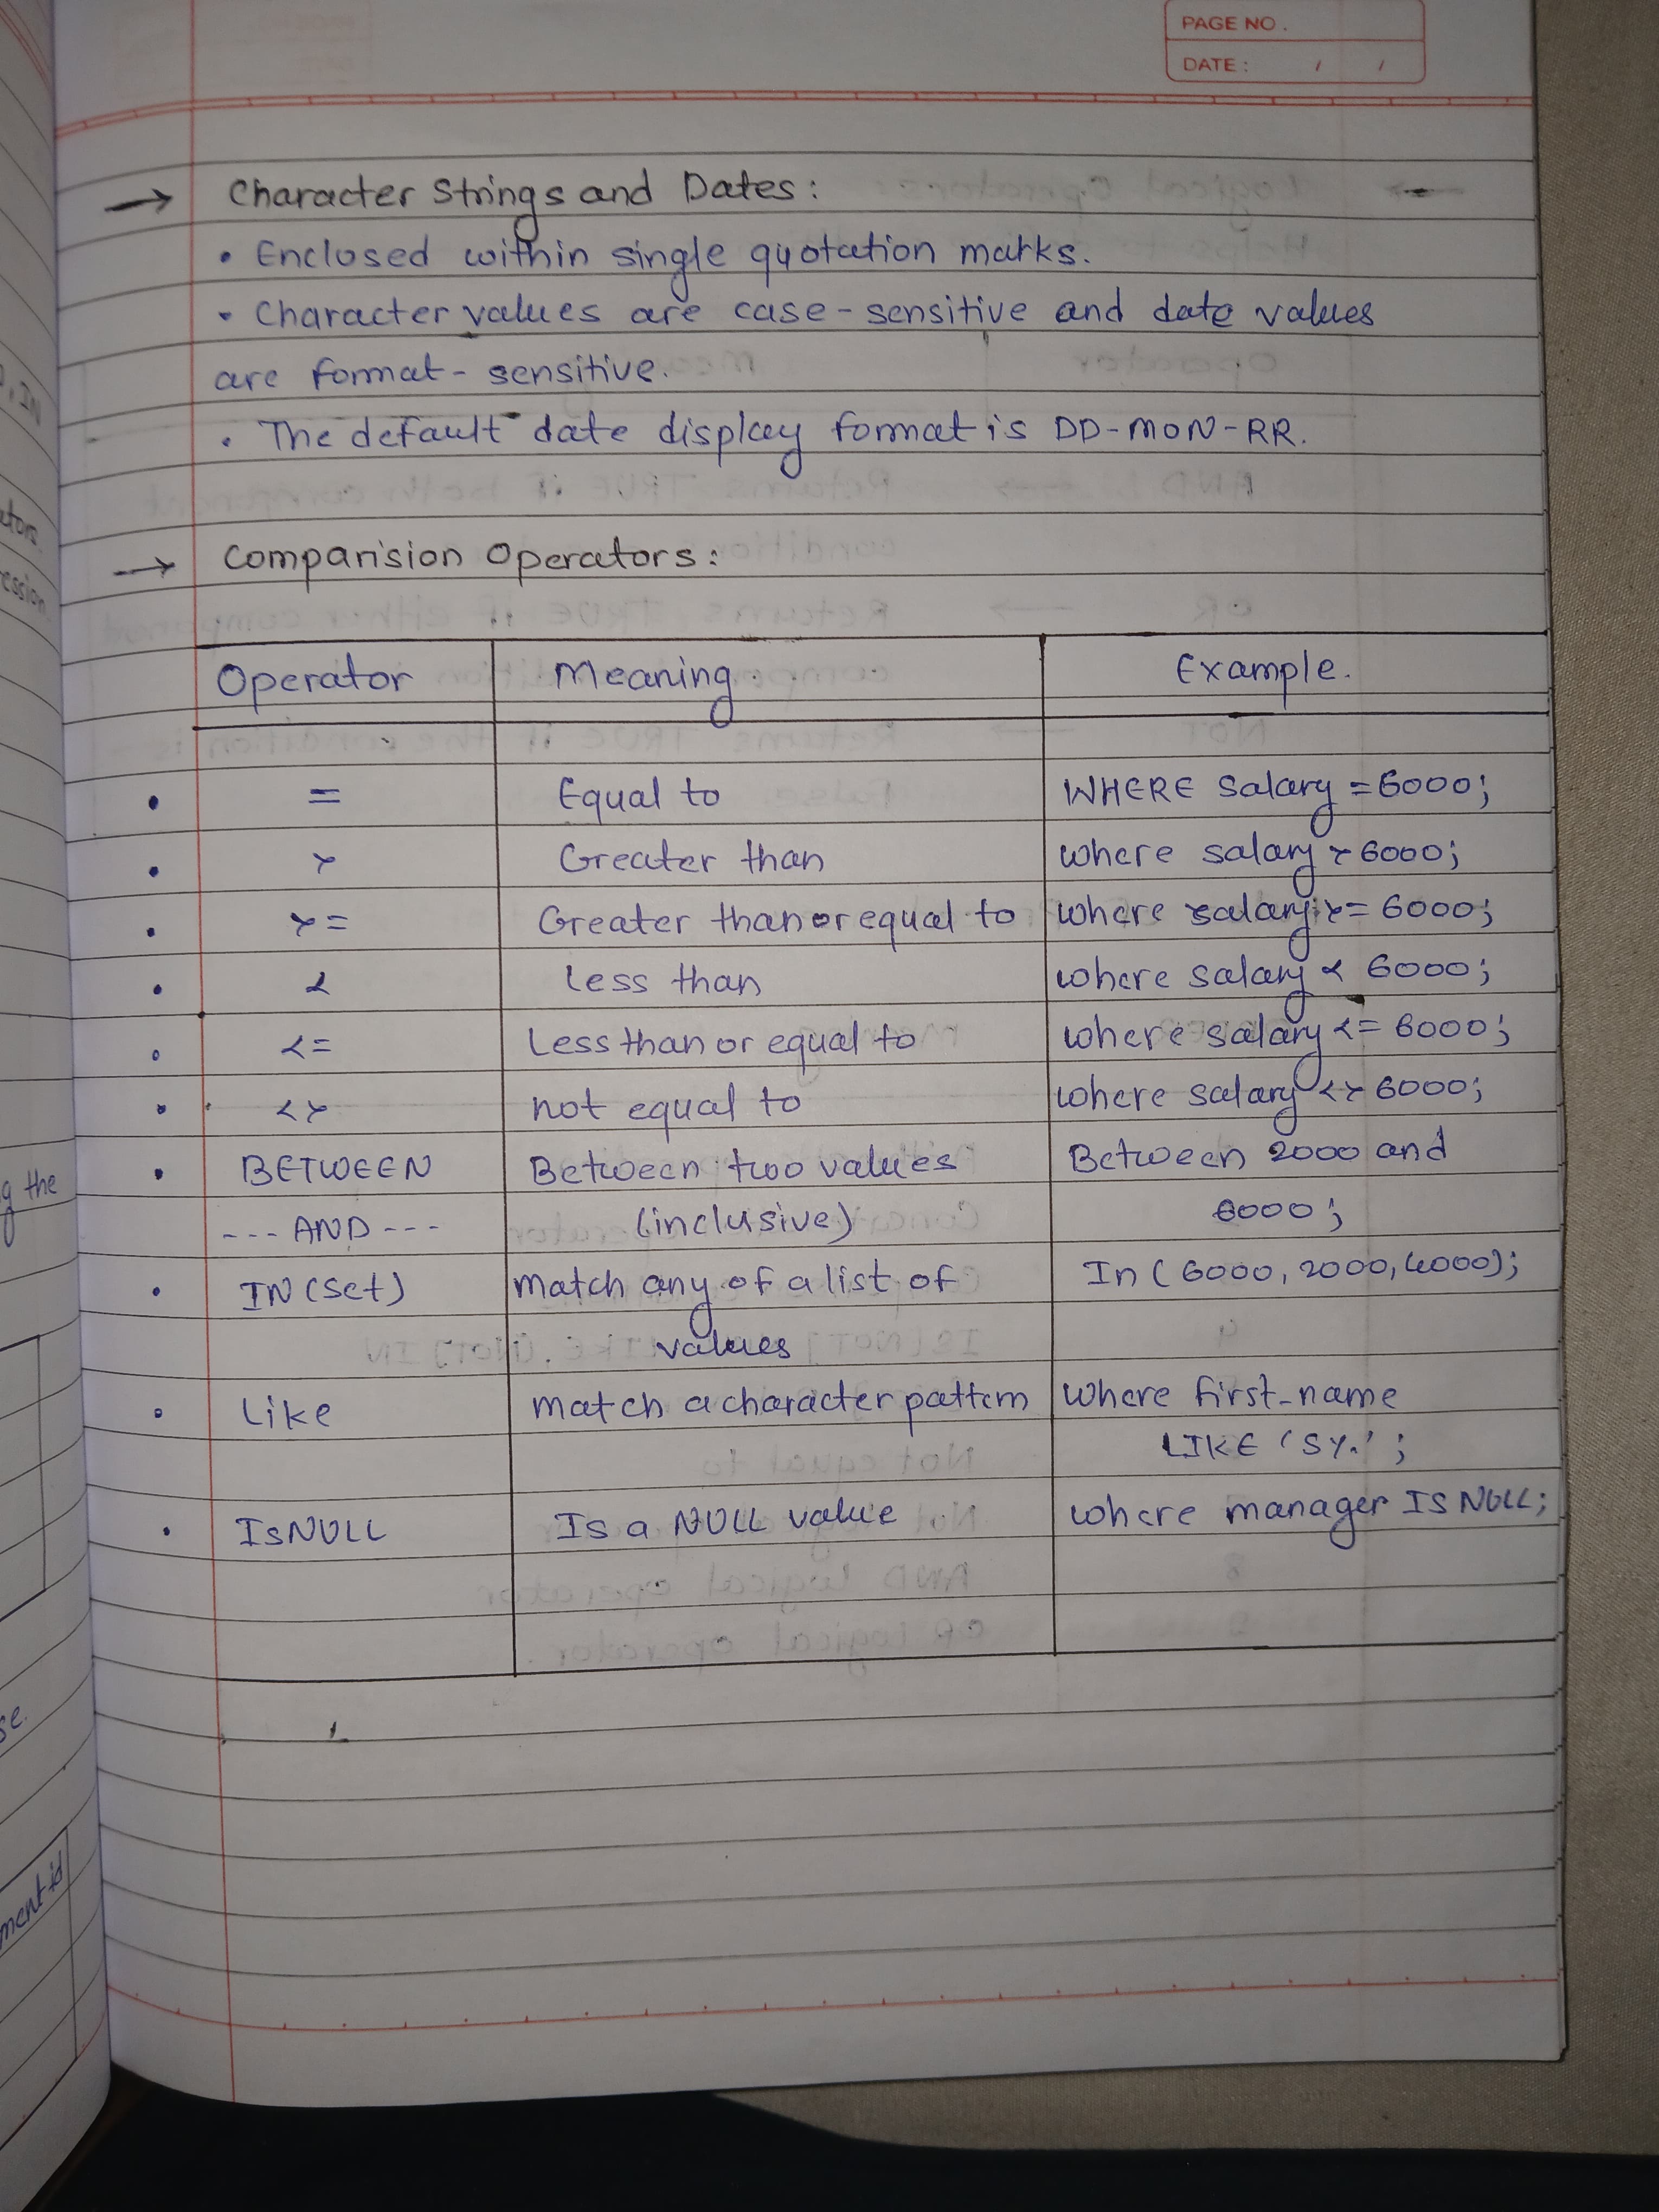 PAGE NO.
DATE: / /
→ Character Strings and Dates:
• Enclosed within single quotation marks.
• Character values are case-sensitive and date values
are format-sensitive.
• The default date display format is DD-MON-RR.
→ Comparision Operators:
Operator Meaning Example.
• = Equal to WHERE salary = 6000;
• > Greater than where salary > 6000;
• >= Greater than or equal to where salary >= 6000;
• < Less than where salary < 6000;
• <= Less than or equal to where salary <= 6000;
• <> not equal to where salary <> 6000;
• BETWEEN Between two values Between 2000 and
--- AND --- (inclusive) 6000;
• IN (Set) match any of a list of In (6000, 2000, 4000);
values
• Like match a character pattern where first_name
LIKE 'S%';
• IsNULL Is a NULL value where manager IS NULL;
g the
se.
ment id